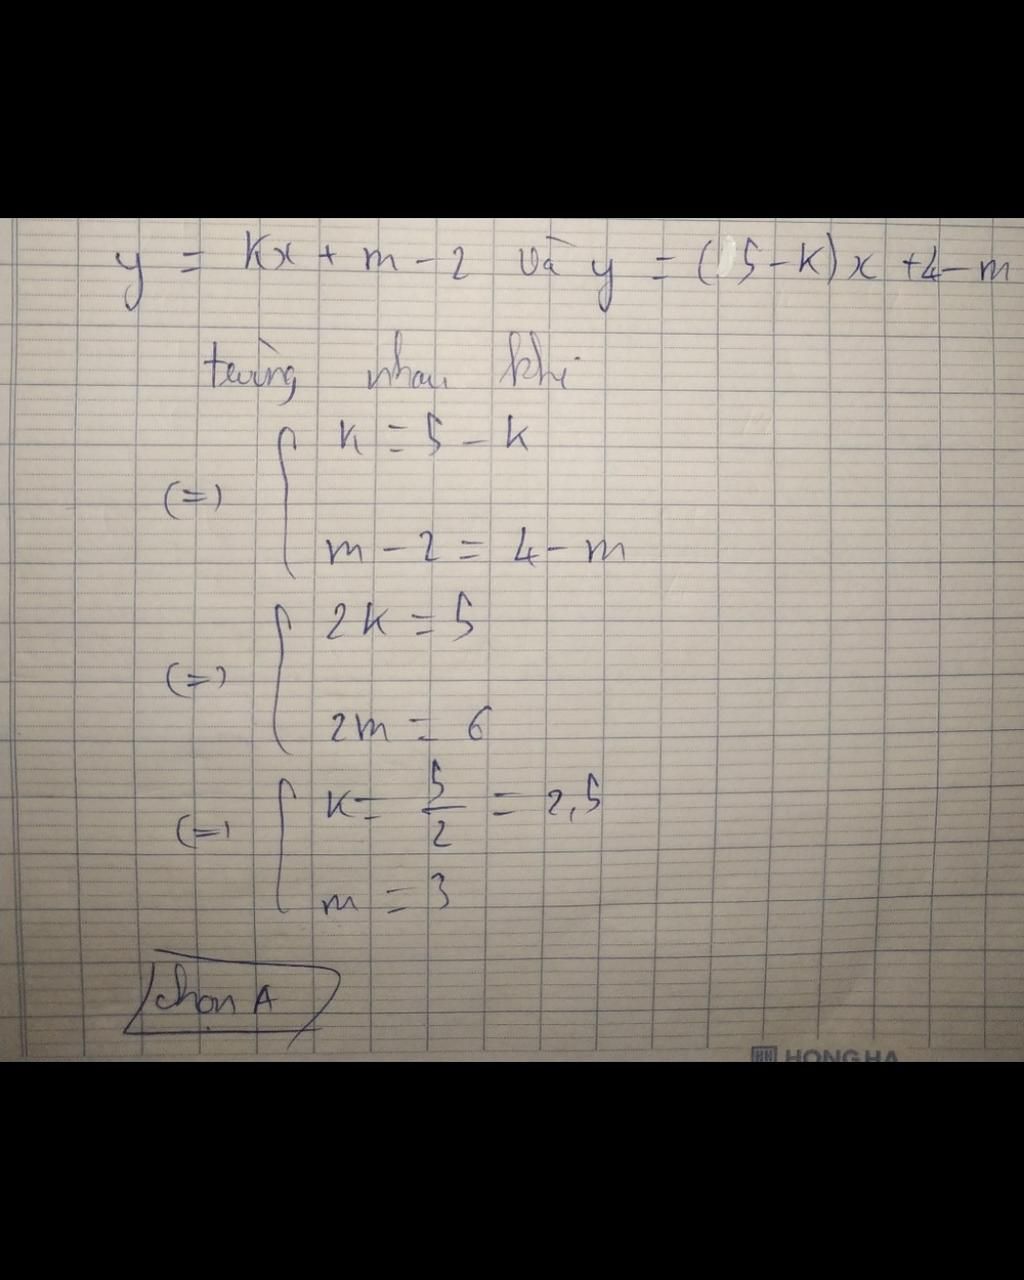 y = kx + m - 2 và y = (5 - k)x + 4 - m
trùng nhau khi
(=) { k = 5 - k
m - 2 = 4 - m
(=) { 2k = 5
2m = 6
(=) { k = 5/2 = 2,5
m = 3
chọn A
HONG HA